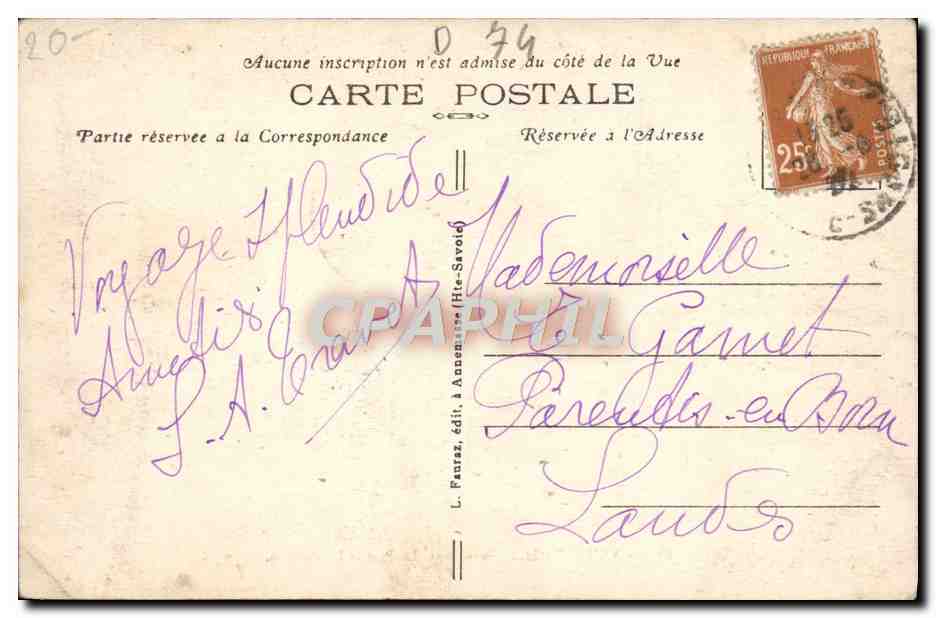 20-
D 74
Aucune inscription n'est admise du côté de la Vue
CARTE POSTALE
Partie réservée a la Correspondance
Réservée à l'Adresse
REPUBLIQUE FRANÇAISE
25c
POSTES
Voyage splendide
Amitiés
L. A.
Mademoiselle
Garnet
Parentis-en-Born
Landes
L. Fauraz, édit. à Annemasse (Hte-Savoie)
CPAPHIL